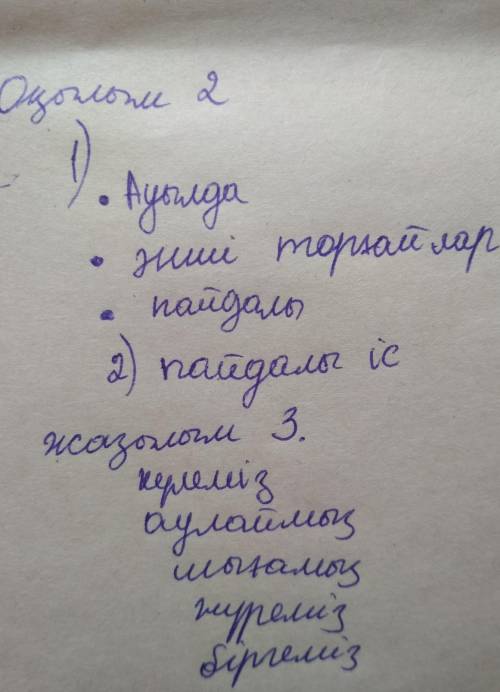 Оқылым 2
1)
• Ауылда
• әнші торғайлар
• пайдалы
2) пайдалы іс
жазылым 3.
жүреміз
аулаймыз
шығамыз
жүреміз
біргеміз